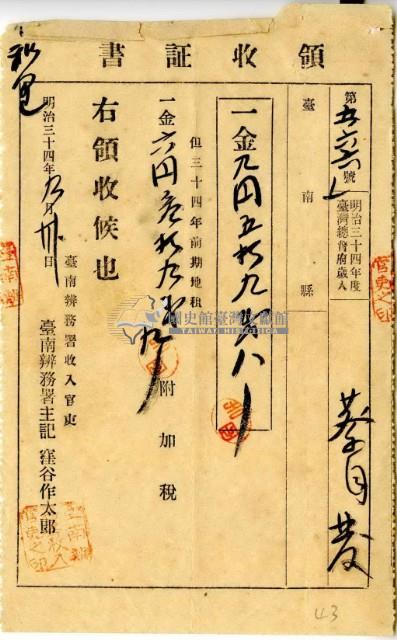 領収証書
第 號
明治三十四年度
臺灣總督府歲入
臺南縣
蔡月
一金九円五拾九銭八
但三十四年前期地租
一金六円 拾九銭九
附加税
右領収候也
明治三十四年九月卅日
臺南辨務署收入官吏
臺南辨務署主記 窪谷作太郎
國史館臺灣文獻館
TAIWAN HISTORICA
43